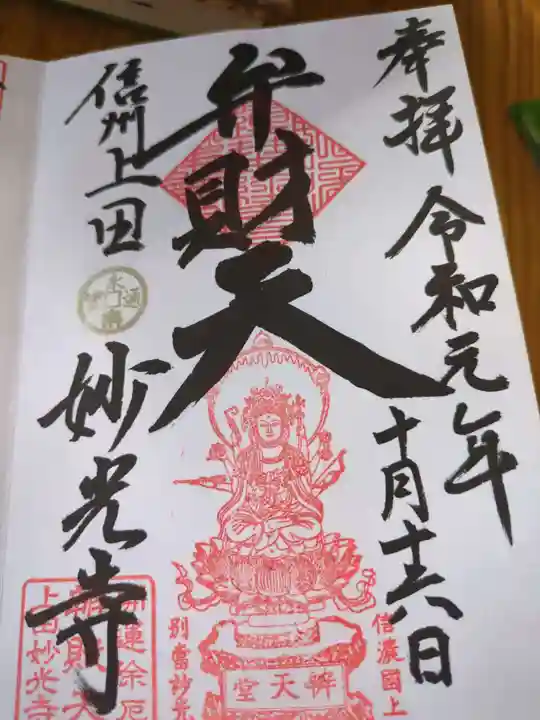 奉拝 令和元年
十月十六日
弁財天
信州上田
妙光寺
信濃國上
辨天堂
別當妙光
開運除厄
辨財天
上田妙光寺